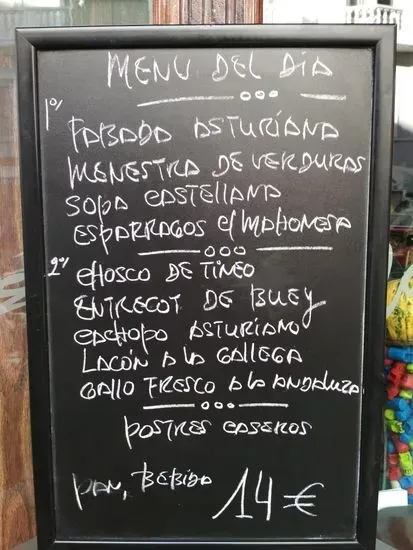 MENU DEL DIA
1º/
FABADA ASTURIANA
MENESTRA DE VERDURAS
SOPA CASTELLANA
ESPARRAGOS C/ MAHONESA
2º/
CHOSCO DE TINEO
ENTRECOT DE BUEY
CACHOPO ASTURIANO
LACÓN A LA GALLEGA
GALLO FRESCO A LA ANDALUZA
POSTRES CASEROS
PAN, BEBIDA 14 €